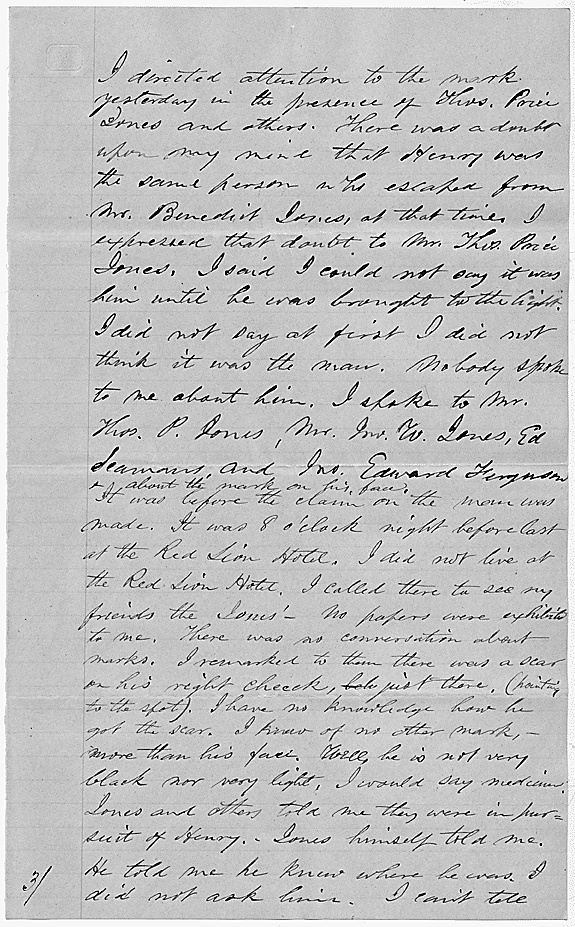 I directed attention to the mark
yesterday in the presence of Thos. Price
Jones and others. There was a doubt
upon my mind that Henry was
the same person who escaped from
Mr. Benedict Jones, at that time, I
expressed that doubt to Mr. Thos. Price
Jones. I said I could not say it was
him until he was brought to the light.
I did not say at first I did not
think it was the man. Nobody spoke
to me about him. I spoke to Mr.
Thos. P. Jones, Mr. Jno. W. Jones, Ed
Seamans, and Jno. Edward Ferguson
about the mark on his face.
It was before the claim on the man was
made. It was 8 o'clock night before last
at the Red Lion Hotel. I did not live at
the Red Lion Hotel. I called there to see my
friends the Jones' - No papers were exhibited
to me. There was no conversation about
marks. I remarked to them there was a scar
on his right cheeck, just there, (pointing
to the spot). I have no knowledge how he
got the scar. I know of no other mark, -
more than his face. Well, he is not very
black nor very light, I would say medium.
Jones and others told me they were in pur=
suit of Henry. - Jones himself told me.
He told me he knew where he was. I
did not ask him. I can't tell
3/